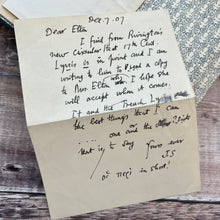 Dec. 7. 07
Dear Ellen
I find from Rivingtons
new circular that 17th Cent.
Lyrics is in print and I am
writing to him to send a copy
to Miss Ellen I hope she
will accept when it comes.
It and the French Lyrics
the best things that I can
one and the
that is to say
yours ever
in short!